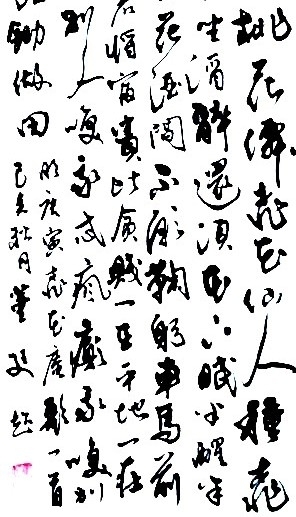 桃花僊桃花仙人種桃
坐酒醉還須花下眠半醒半
花酒間不願鞠躬車馬前
若將富貴比貧賤一在平地一在
別人咲我忒瘋癲我咲別
鋤做田
明唐寅桃花庵歌一首
己亥秋月董